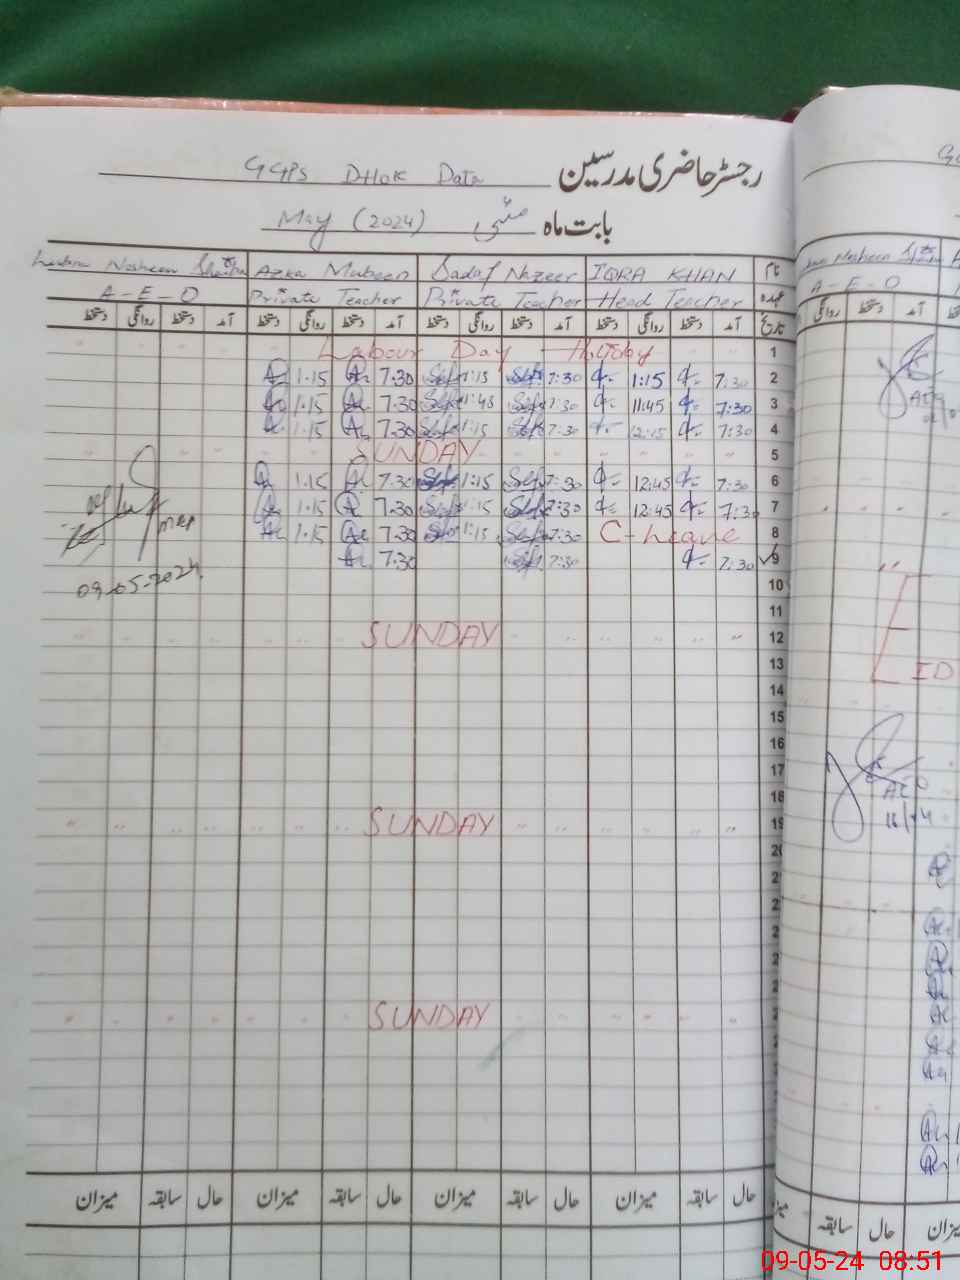 رجسٹر حاضری مدرسین GGPS DHOK Data
بابت ماہ مئی May (2024)
نام IQRA KHAN Sadaf Nazeer Azka Mubeen Nosheen
عہدہ Head Teacher Private Teacher Private Teacher A-E-O
تاریخ آمد دستخط روانگی دستخط آمد دستخط روانگی دستخط آمد دستخط روانگی دستخط آمد دستخط روانگی دستخط
1 Labour Day Holiday
2 7:30 1:15 7:30 1:15 7.30 1.15
3 7:30 11:45 7:30 1:45 7.30 1.15
4 7:30 12:15 7:30 1:15 7.30 1.15
5 SUNDAY
6 7:30 12:45 7:30 1:15 7.30 1.15
7 7:30 12:45 7:30 1:15 7.30 1.15
8 C-Leave 7:30 1:15 7.30 1.15
9 7:30 7:30 7.30
09-05-2024
10
11
12 SUNDAY
13
14
15
16
17
18
19 SUNDAY
SUNDAY
حال سابقہ میزان حال سابقہ میزان حال سابقہ میزان حال سابقہ میزان
Nosheen
A-E-O
آمد دستخط روانگی
EID
AEO
حال سابقہ
09-05-24 08:51